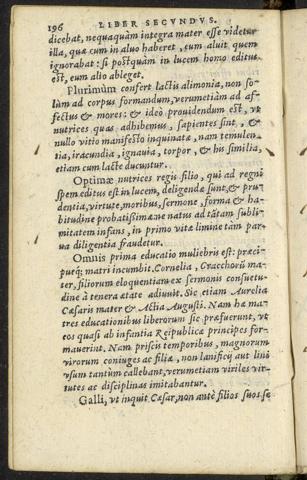 196 LIBER SECVNDVS.
dicebat, nequaquàm integra mater esse videtur
illa, quæ cum in aluo haberet, eum aluit quem
ignorabat: si postquàm in lucem homo editus
est, eum alio ableget.
Plurimùm confert lactis alimonia, non so-
lùm ad corpus formandum, verumetiàm ad af-
fectus & mores: & ideò prouidendum est, vt
nutrices quas adhibemus, sapientes sint, &
nullo vitio manifesto inquinatæ, nam temulen-
tia, iracundia, ignauia, torpor, & his similia,
etiam cum lacte ducuntur.
Optimæ nutrices regis filio, qui ad regni
spem editus est in lucem, deligendæ sunt, & pru-
dentia, virtute, moribus, sermone, forma & ha-
bitudine probatissimæ: ne natus ad tãtam subli-
mitatem infans, in primo vitæ limine tàm par-
ua diligentia fraudetur.
Omnis prima educatio muliebris est: præci-
pueq; matri incumbit. Cornelia, Gracchorũ ma-
ter, filiorum eloquentiam ex sermonis consuetu-
dine à tenera ætate adiuuit. Sic etiam Aurelia
Cæsaris mater & Actia Augusti. Nam hæ ma-
tres educationibus liberorum sic præfuerunt, vt
eos quasi ab infantia Reipublicæ principes for-
mauerint. Nam priscis temporibus, magnorum
virorum coniuges ac filiæ, non lanificij aut lini
vsum tantùm callebant, verumetiam viriles vir-
tutes ac disciplinas imitabantur.
Galli, vt inquit Cæsar, non antè filios suos se